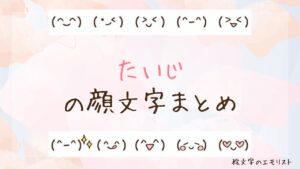 (^‿^) (•‿<) (>‿<) (^-^) (>‿<)
たいじ
の顔文字まとめ
(^-^)✨ (^‿^) (^▽^) (◡‿◡) (♡‿♡)
絵文字のエモリスト